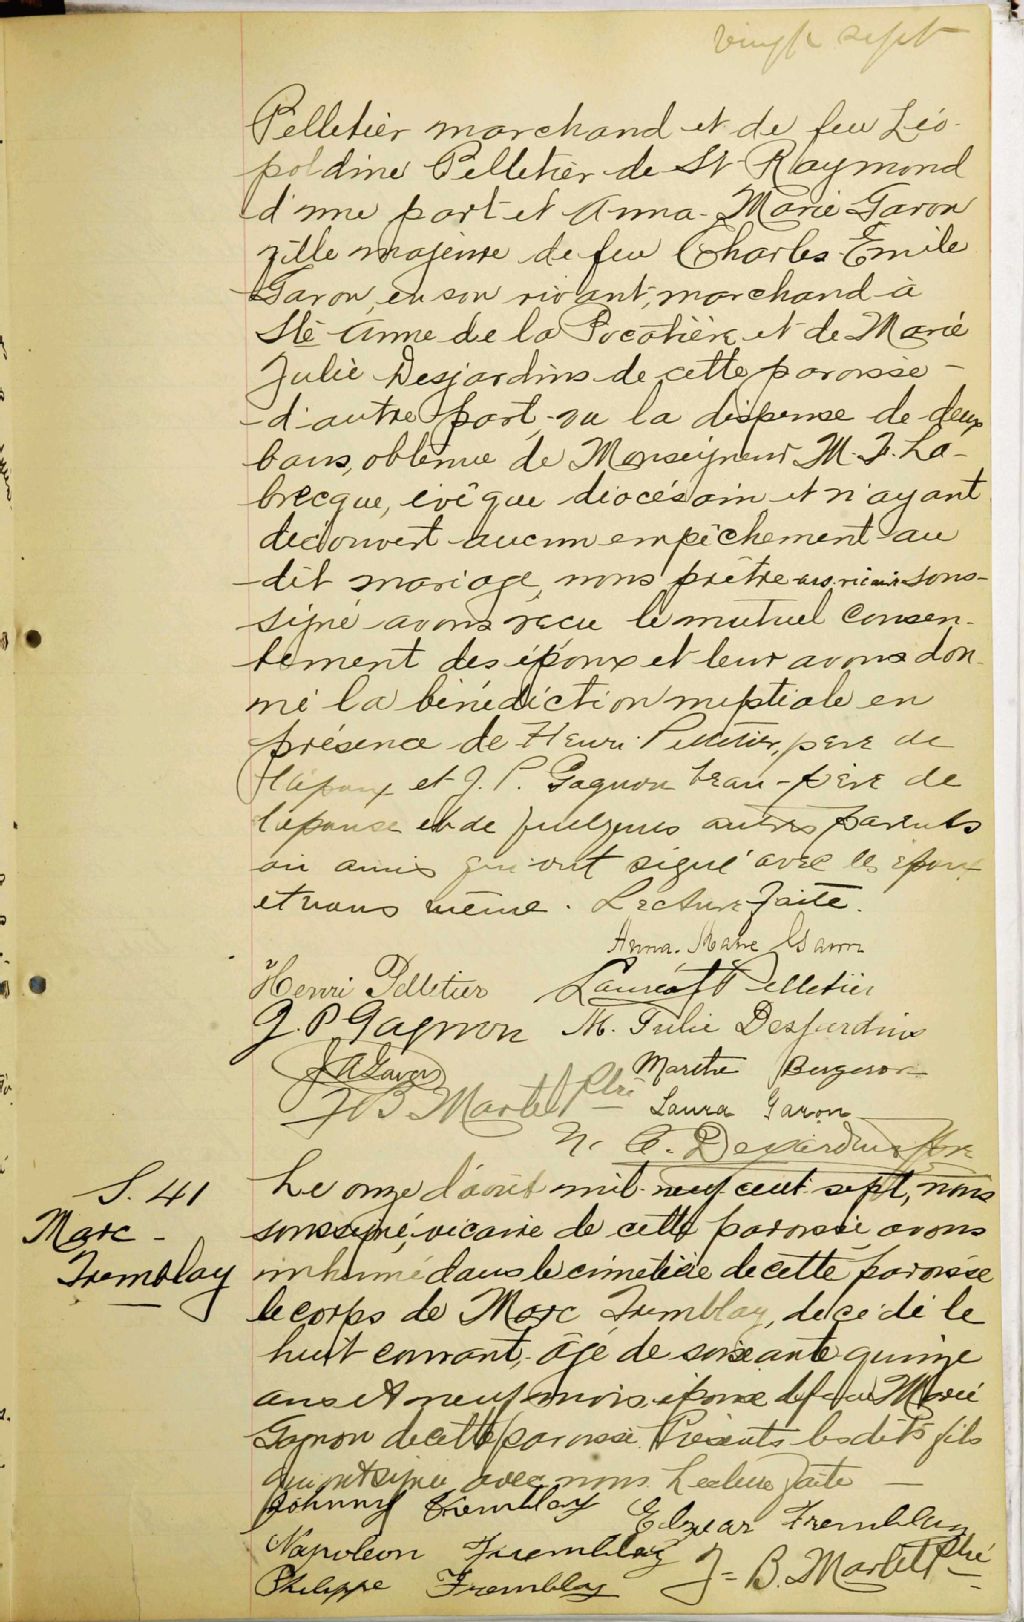 vingt sept
Pelletier marchand et de feu Léo-
poldine Pelletier de St Raymond
d'une part et Anna-Marie Garon
fille majeure de feu Charles-Emile
Garon, en son vivant, marchand à
Ste Anne de la Pocatière et de Marie
Julie Desjardins de cette paroisse
d'autre part, vu la dispense de deux
bans, obtenue de Monseigneur M. T. La-
brecque, évêque diocésain et n'ayant
découvert aucun empêchement au
dit mariage, nous prêtre sous-
signé avons reçu le mutuel consen-
tement des époux et leur avons don-
né la bénédiction nuptiale en
présence de Henri Pelletier, père de
l'époux et J. P. Gagnon beau-père de
l'épouse et de quelques autres parents
ou amis qui ont signé avec les époux
et nous même. Lecture faite.
Anna-Marie Garon
Henri Pelletier Lauréat Pelletier
J. P Gagnon M. Julie Desjardins
J A Garon Marthe Bergeron
J B Martel Ptre Laura Garon
N. C. Desjardins Ptre
S. 41
Marc
Tremblay
Le onze d'août mil-neuf cent-sept, nous
soussigné, vicaire de cette paroisse avons
inhumé dans le cimetière de cette paroisse
le corps de Marc Tremblay, décédé le
huit courant, âgé de soixante quinze
ans et neuf mois, époux de feue Marie
Gagnon de cette paroisse. Présents les dits fils
qui ont signé avec nous. Lecture faite
Johnny Tremblay Elzear Tremblay
Napoleon Tremblay J-B. Martel Ptre
Philippe Tremblay